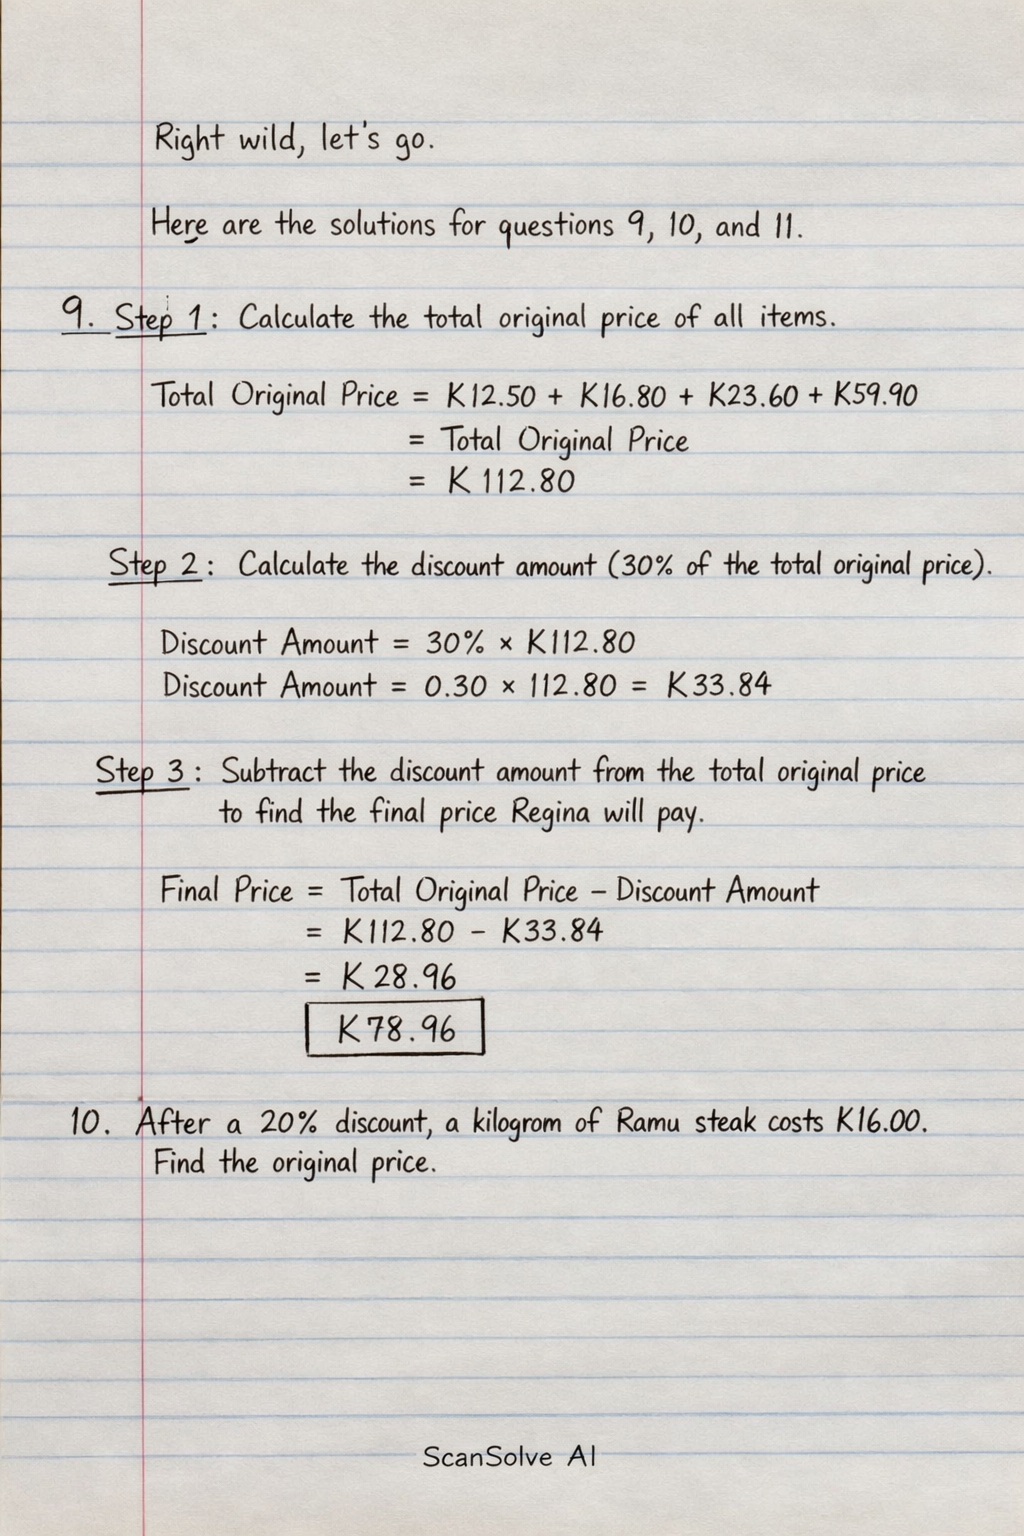 Right wild, let's go.
Here are the solutions for questions 9, 10, and 11.
9. Step 1: Calculate the total original price of all items.
Total Original Price = K12.50 + K16.80 + K23.60 + K59.90
= Total Original Price
= K 112.80
Step 2: Calculate the discount amount (30% of the total original price).
Discount Amount = 30% × K112.80
Discount Amount = 0.30 × 112.80 = K33.84
Step 3: Subtract the discount amount from the total original price
to find the final price Regina will pay.
Final Price = Total Original Price – Discount Amount
= K112.80 – K33.84
= K 28.96
K 78.96
10. After a 20% discount, a kilogrom of Ramu steak costs K16.00.
Find the original price.
ScanSolve AI